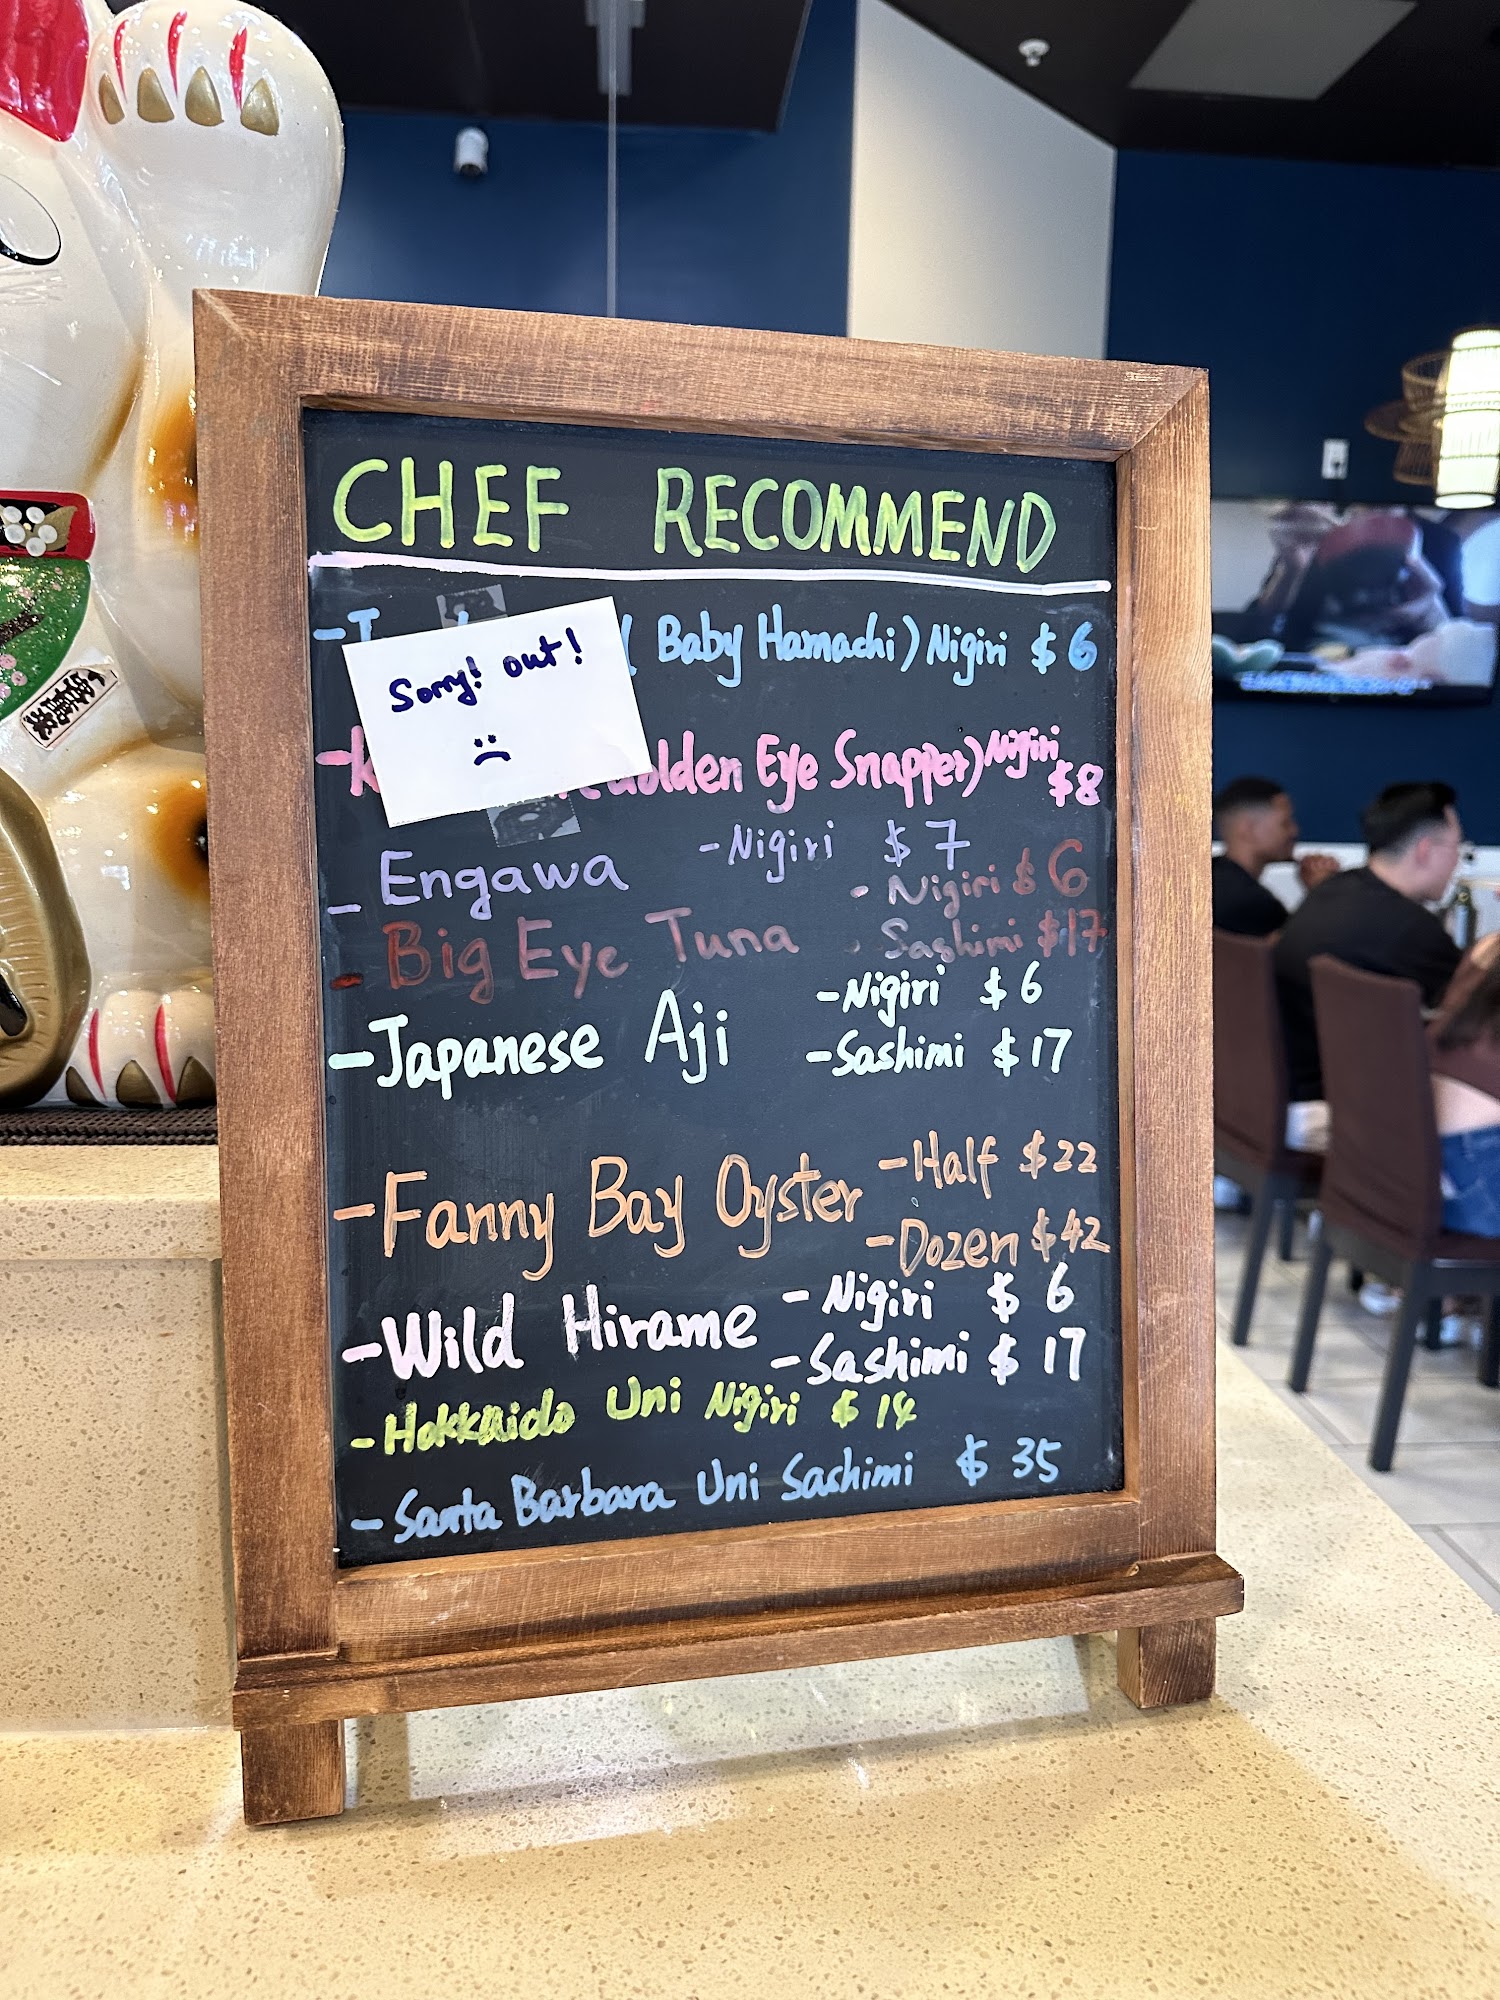 CHEF RECOMMEND
Sorry! out!
Baby Hamachi) Nigiri $6
Golden Eye Snapper) Nigiri $8
- Engawa - Nigiri $7
- Big Eye Tuna - Nigiri $6
- Sashimi $17
- Japanese Aji - Nigiri $6
- Sashimi $17
- Fanny Bay Oyster - Half $22
- Dozen $42
- Wild Hirame - Nigiri $6
- Sashimi $17
- Hokkaido Uni Nigiri $14
- Santa Barbara Uni Sashimi $35